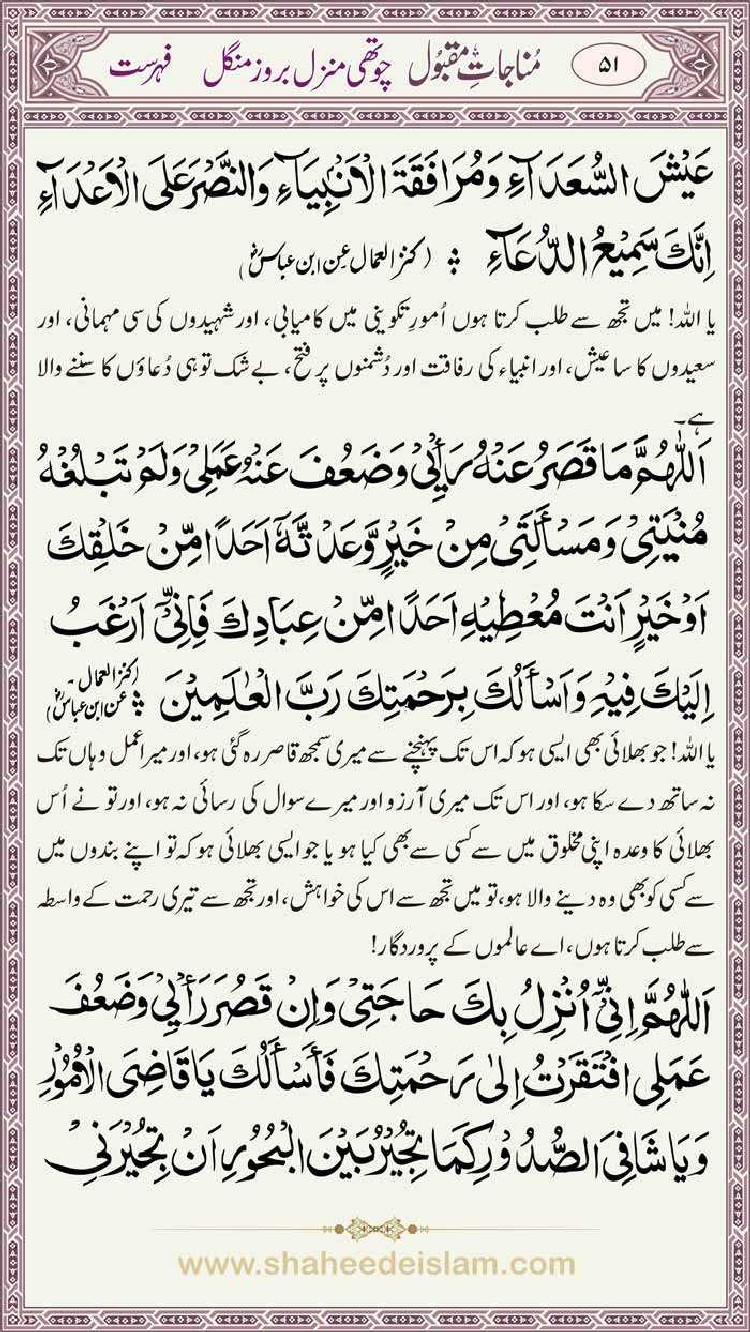 ۵۱ مُناجاتِ مقبُول چوتھی منزل بروز منگل فہرست
عَيْشَ السُّعَدَآءِ وَمُرَافَقَةَ الْاَنْۢبِيَآءِ وَالنَّصْرَ عَلَى الْاَعْدَآءِ
اِنَّكَ سَمِيْعُ الدُّعَآءِ ؞ (کنز العمال عن ابن عباسؓ)
یا اللہ! میں تجھ سے طلب کرتا ہوں اُمورِ تکوینی میں کامیابی، اور شہیدوں کی سی مہمانی، اور
سعیدوں کا سا عیش، اور انبیاء کی رفاقت اور دُشمنوں پر فتح، بے شک تو ہی دُعاؤں کا سننے والا
ہے۔
اَللّٰهُمَّ مَا قَصُرَ عَنْهُ رَأْيِيْ وَضَعُفَ عَنْهُ عَمَلِيْ وَلَمْ تَبْلُغْهُ
مُنْيَتِيْ وَمَسْأَلَتِيْ مِنْ خَيْرٍ وَّعَدْتَّهٗٓ اَحَدًا مِّنْ خَلْقِكَ
اَوْ خَيْرٍ اَنْتَ مُعْطِيْهِ اَحَدًا مِّنْ عِبَادِكَ فَاِنِّيْٓ اَرْغَبُ
اِلَيْكَ فِيْهِ وَاَسْأَلُكَ بِرَحْمَتِكَ رَبَّ الْعٰلَمِيْنَ ؞ (کنز العمال عن ابن عباسؓ)
یا اللہ! جو بھلائی بھی ایسی ہو کہ اس تک پہنچنے سے میری سمجھ قاصر رہ گئی ہو، اور میرا عمل وہاں تک
نہ ساتھ دے سکا ہو، اور اس تک میری آرزو اور میرے سوال کی رسائی نہ ہو، اور تو نے اُس
بھلائی کا وعدہ اپنی مخلوق میں سے کسی سے بھی کیا ہو یا جو ایسی بھلائی ہو کہ تو اپنے بندوں میں
سے کسی کو بھی وہ دینے والا ہو، تو میں تجھ سے اس کی خواہش، اور تجھ سے تیری رحمت کے واسطہ
سے طلب کرتا ہوں، اے عالموں کے پروردگار!
اَللّٰهُمَّ اِنِّيْٓ اُنْزِلُ بِكَ حَاجَتِيْ وَاِنْ قَصُرَ رَأْيِيْ وَضَعُفَ
عَمَلِي افْتَقَرْتُ اِلٰى رَحْمَتِكَ فَأَسْأَلُكَ يَا قَاضِيَ الْاُمُوْرِ
وَيَا شَافِيَ الصُّدُوْرِ كَمَا تُجِيْرُ بَيْنَ الْبُحُوْرِ اَنْ تُجِيْرَنِيْ
www.shaheedeislam.com